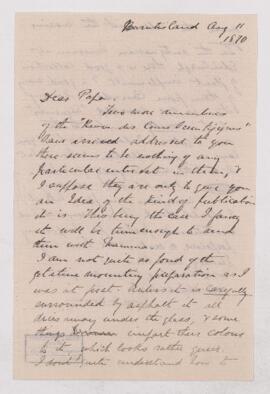 Burntisland Aug 11
1870
Dear Papa
Two more numbers
of the "Revue des Cours Scientifiques"
have arrived addressed to you
there seems to be nothing of any
particular interest in them, &
I suppose they are only to give you
an Idea of the kind of publication
it is. This being the case I fancy
it will be time enough to send
them with Mamma.
I am not quite as fond of the
gelatine mounting preparation as I
was at first. Unless it is carefully
surrounded by asphalt it all
dries away under the glass, & some
things impart their colour
to it, which looks rather queer.
I don't quite understand how to